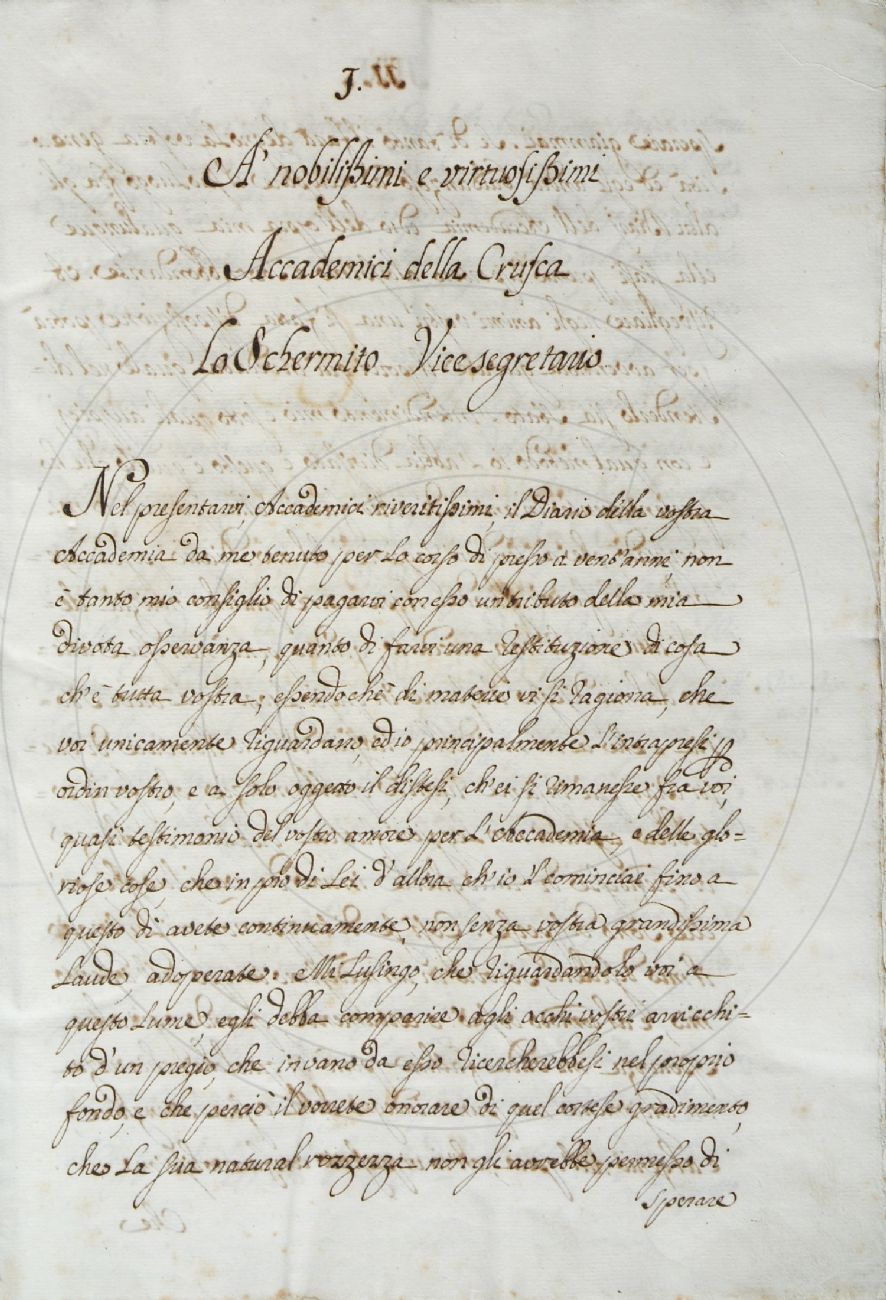 I.
A' nobilissimi e virtuosissimi
Accademici della Crusca
Lo Schermito Vicesegretario
Nel presentarvi, Accademici riveritissimi, il Diario della vostra
Accademia da me tenuto per lo corso di presso a vent'anni, non
è tanto mio consiglio di pagarvi con esso un tributo della mia
divota osservanza, quanto di farvi una restituzione di cosa
ch'è tutta vostra; essendochè di materie vi si ragiona, che
voi unicamente riguardano, ed io principalmente l'intrapresi p
ordin vostro, e a solo oggetto il distesi, ch'ei si rimanesse fra voi,
quasi testimonio del vostro amore per l'Accademia, e delle glo=
riose cose, che in prò di Lei d'allora ch'io l'cominciai fino a
questo dì avete continuamente, non senza vostra grandissima
laude adoperate. Mi lusingo, che riguardandolo voi a
questo lume, egli debba comparire agli occhi vostri arricchi=
to d'un pregio, che invano da esso ricercherebbesi nel proprio
fondo, e che perciò il vorrete onorare di quel cortese gradimento,
che la sua natural rozzezza non gli avrebbe permesso di
sperare